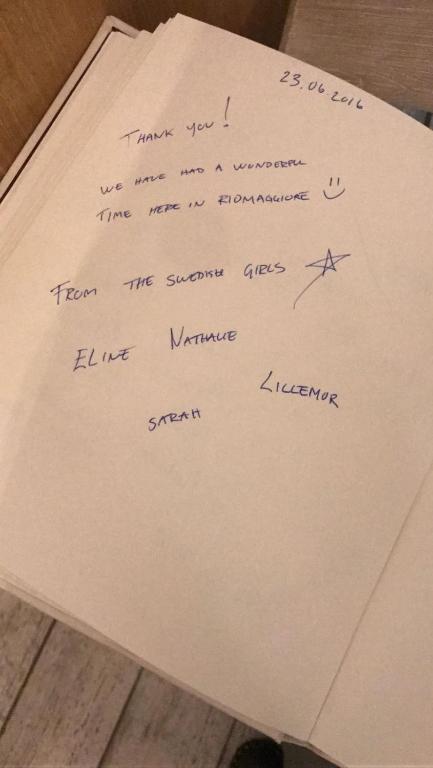 23.06.2016
THANK YOU!
WE HAVE HAD A WONDERFUL
TIME HERE IN RIOMAGGIORE
FROM THE SWEDISH GIRLS
ELINE NATHALIE
LILLEMOR
SARAH